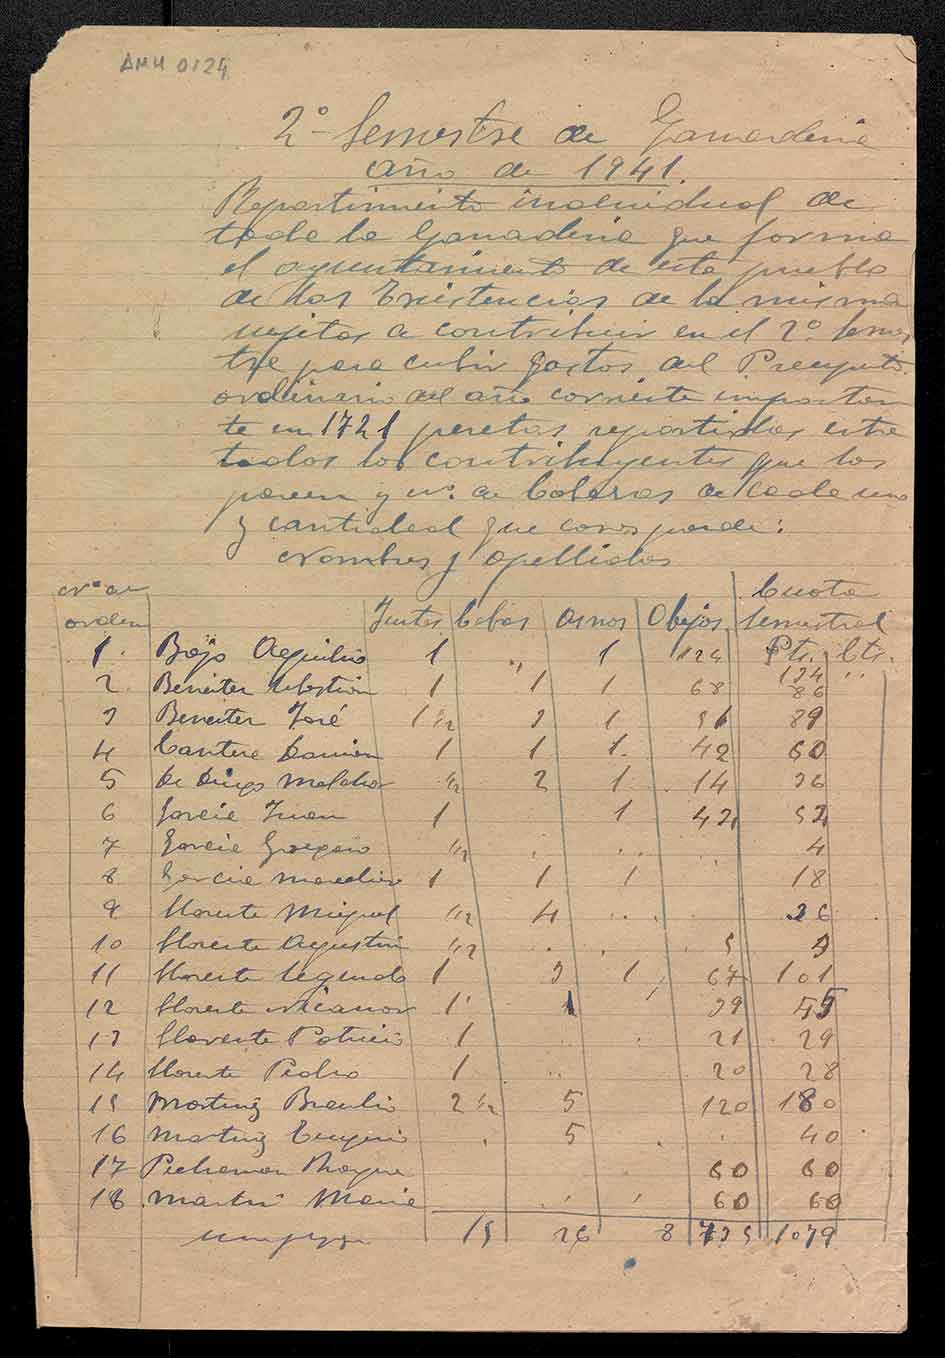 AMH 0124
2º Semestre de Ganaderia
año de 1941.
Repartimiento individual de
toda la Ganaderia que forma
el ayuntamiento de este pueblo
de las Existencias de la misma
sujetas a contribuir en el 2º. Semes
tre para cubrir gastos del Presupto.
ordinario del año corriente importan
te en 1721 pesetas repartidas entre
todos los contribuyentes que los
poseen y nº. de Cabezas de cada uno
y cantidad que corresponde:
Nombres y apellidos
Nº de orden Juntas Cabas Asnos Obejas Cuota Semestral
Pts. Cts.
1. Bajo Aequilio 1 " 1 124 134 "
2. Beneiter Sebastian 1 1 1 68 86
3 Beneiter José 1 1/2 3 1 51 89
4 Cantere Damian 1 1 1. 42 60
5 De Diego Melchor 1/2 2 1 14 36
6 Garcia Juan 1 1 42 52
7 Garcia Gregorio 1/2 . . .. 4
8 Garcia 1 1 1 18
9 Llorente Miguel 1/2 4 .. . 36
10 Llorente Agustin 1/2 . . 5 9
11 Llorente Segundo 1 3 1 67 101
12 Llorente Nicanor 1 1 39 55
13 Llorente Patricio 1 . . 21 29
14 Llorente Pedro 1 .. 20 28
15 Martinez Braulio 2 1/2 5 120 180
16 Martinez Eugenio . 5 . . 40
17 Roque 60 60
18. Martin Maria . . 60 60
15 26 8 735 1079